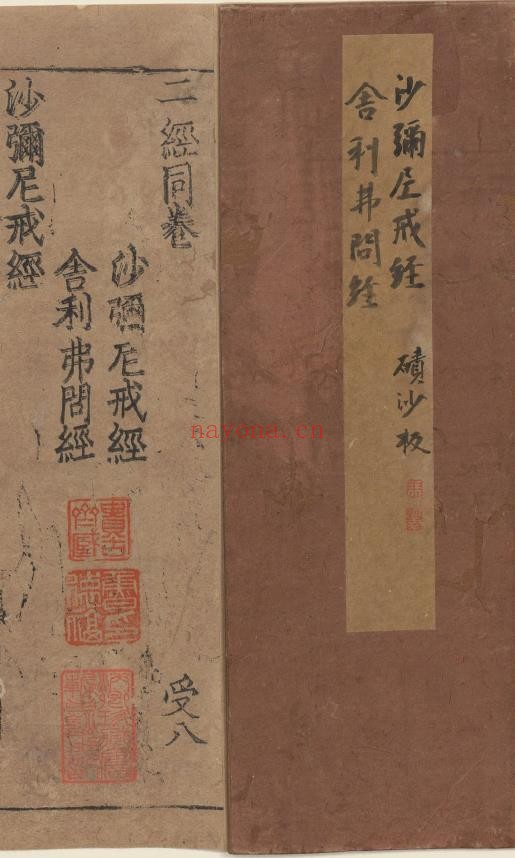 沙彌尼戒經 磧沙板
舍利弗問經
二經同卷
沙彌尼戒經
舍利弗問經
受八
沙彌尼戒經
naroma.cn